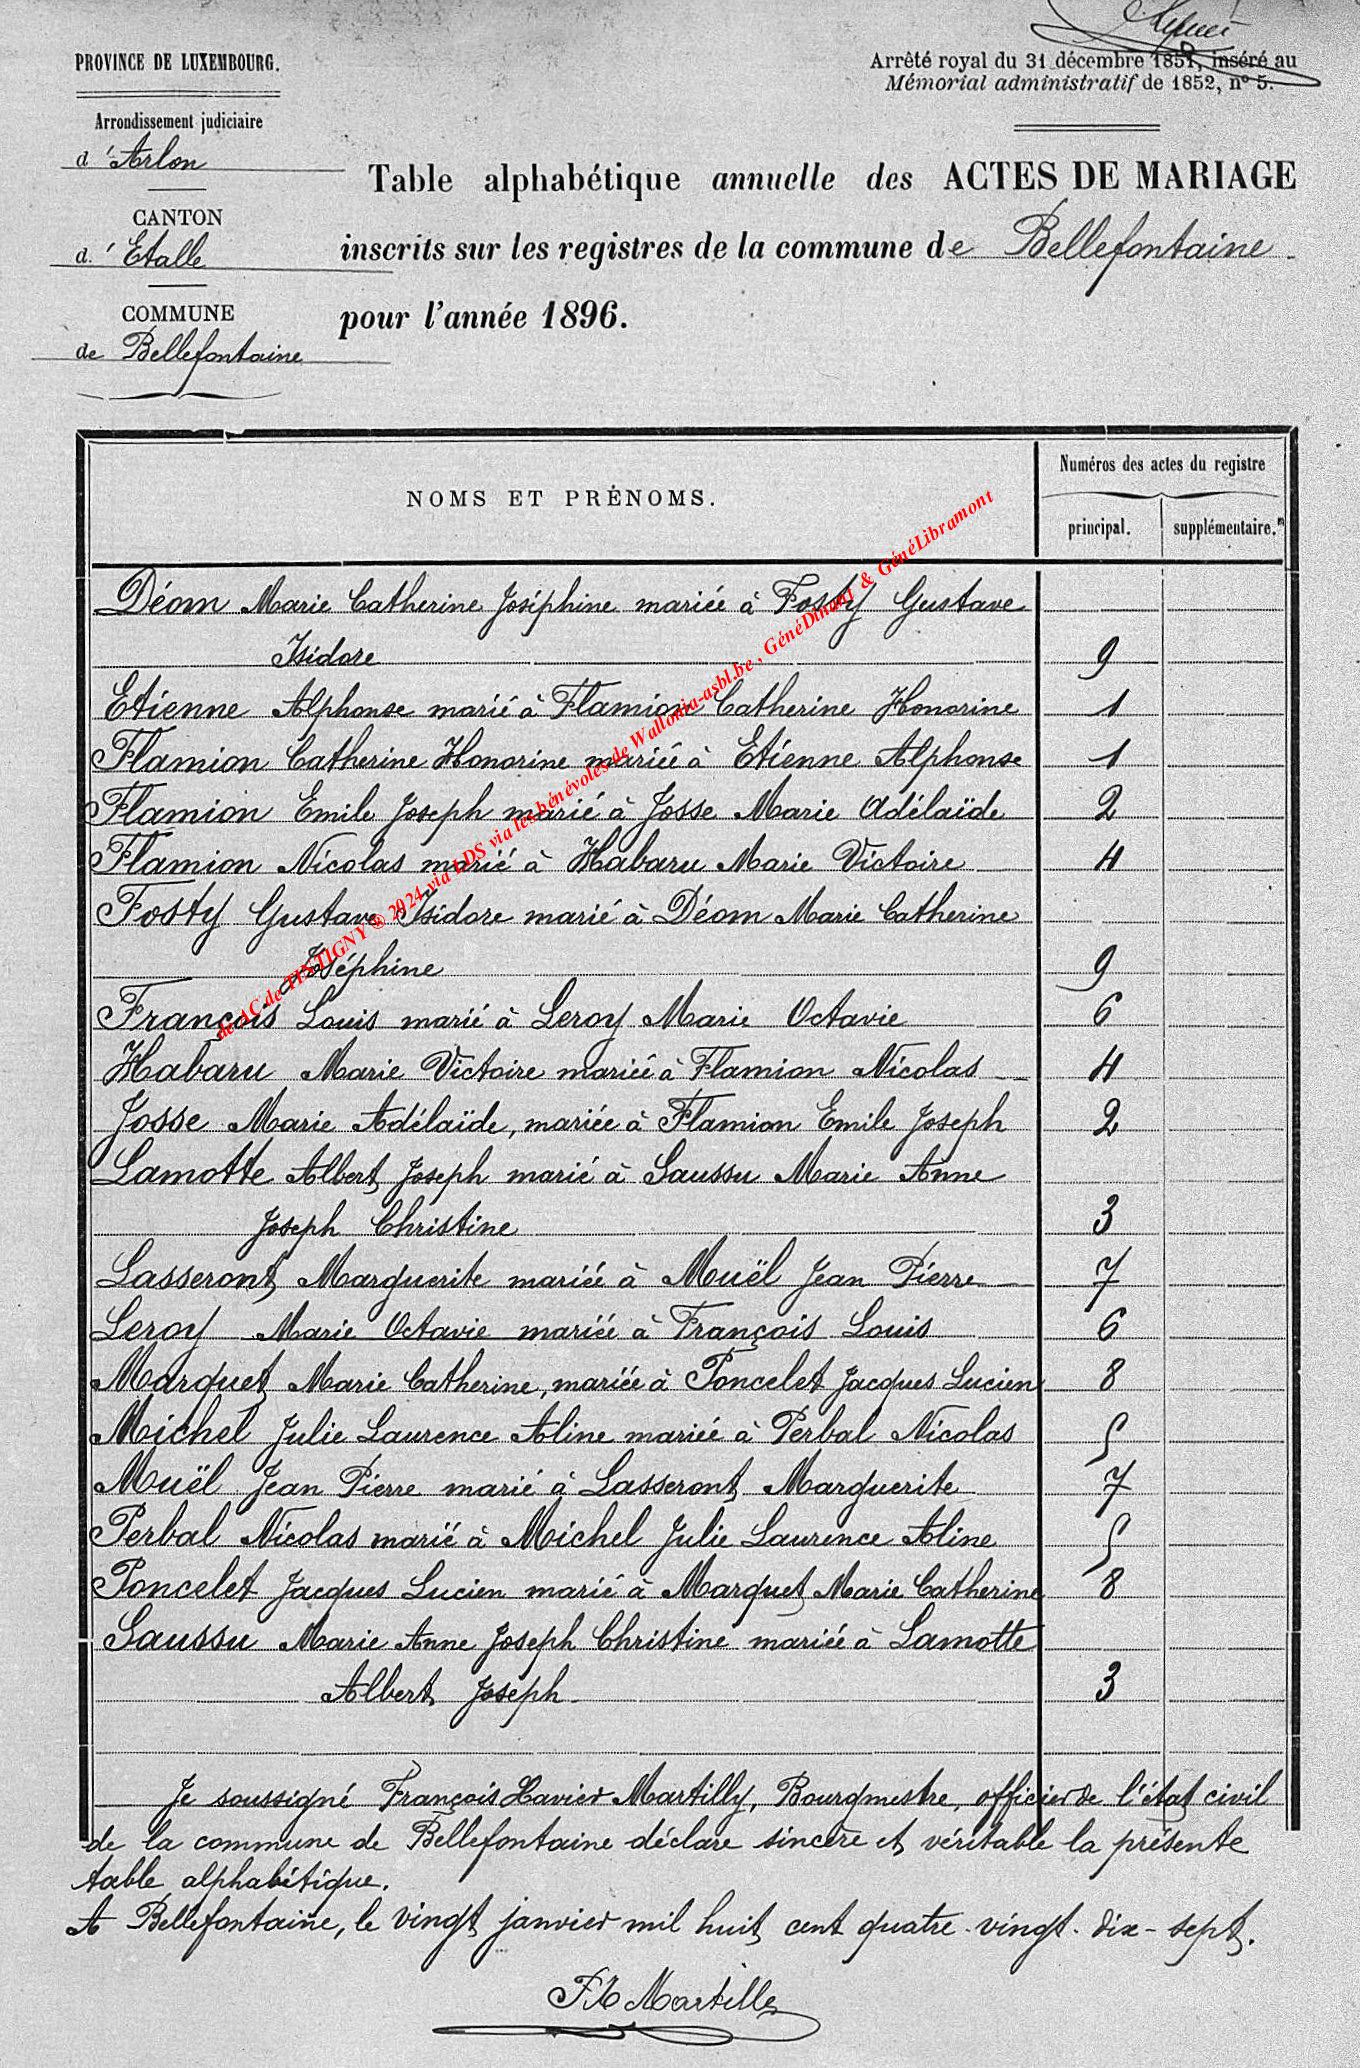 PROVINCE DE LUXEMBOURG.
Arrondissement judiciaire
d'Arlon
CANTON
d'Etalle
COMMUNE
de Bellefontaine
Arrêté royal du 31 décembre 1851, inséré au
Mémorial administratif de 1852, n° 5.
Table alphabétique annuelle des ACTES DE MARIAGE
inscrits sur les registres de la commune de Bellefontaine
pour l'année 1896.
NOMS ET PRÉNOMS.
Numéros des actes du registre
principal. supplémentaire.
Déom Marie Catherine Joséphine mariée à Fosty Gustave
Isidore 9
Etienne Alphonse marié à Flamion Catherine Honorine 1
Flamion Catherine Honorine mariée à Etienne Alphonse 1
Flamion Emile Joseph marié à Josse Marie Adélaïde 2
Flamion Nicolas marié à Habaru Marie Victoire 4
Fosty Gustave Isidore marié à Déom Marie Catherine
Joséphine 9
François Louis marié à Leroy Marie Octavie 6
Habaru Marie Victoire mariée à Flamion Nicolas 4
Josse Marie Adélaïde, mariée à Flamion Emile Joseph 2
Lamotte Albert Joseph marié à Saussu Marie Anne
Joseph Christine 3
Lasseront Marguerite mariée à Muël Jean Pierre 7
Leroy Marie Octavie mariée à François Louis 6
Marquet Marie Catherine, mariée à Poncelet Jacques Lucien 8
Michel Julie Laurence Aline mariée à Perbal Nicolas 5
Muël Jean Pierre marié à Lasseront Marguerite 7
Perbal Nicolas marié à Michel Julie Laurence Aline 5
Poncelet Jacques Lucien marié à Marquet Marie Catherine 8
Saussu Marie Anne Joseph Christine mariée à Lamotte
Albert Joseph 3
Je soussigné François Xavier Martilly, Bourgmestre, officier de l'état civil
de la commune de Bellefontaine déclare sincère et véritable la présente
table alphabétique.
A Bellefontaine, le vingt janvier mil huit cent quatre-vingt-dix-sept.
de AC de TINTIGNY @ 2024 via LDS via les bénévoles de Wallonia-asbl.be , GénéDinant & GénéLibramont